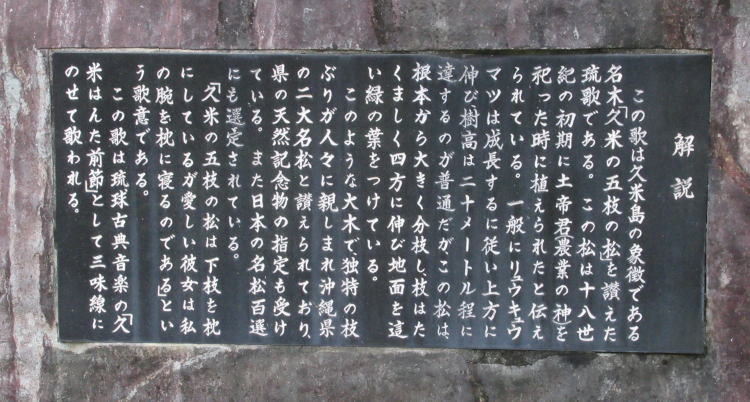 解説
この歌は久米島の象徴である
名木「久米の五枝の松」を讃えた
琉歌である。この松は十八世
紀の初期に土帝君(農業の神)を
祀った時に植えられたと伝え
られている。一般にリュウキュウ
マツは成長するに従い上方に
伸び樹高は二十メートル程に
達するのが普通だがこの松は、
根本から大きく分枝し、枝はた
くましく四方に伸び地面を這
い緑の葉をつけている。
このような大木で独特の枝
ぶりが人々に親しまれ沖縄県
の二大名松と讃えられており、
県の天然記念物の指定も受け
ている。また日本の名松百選
にも選定されている。
「久米の五枝の松は下枝を枕
にしているが愛しい彼女は私
の腕を枕に寝るのである」とい
う歌意である。
この歌は琉球古典音楽の「久
米はんた前節」として三味線に
のせて歌われる。